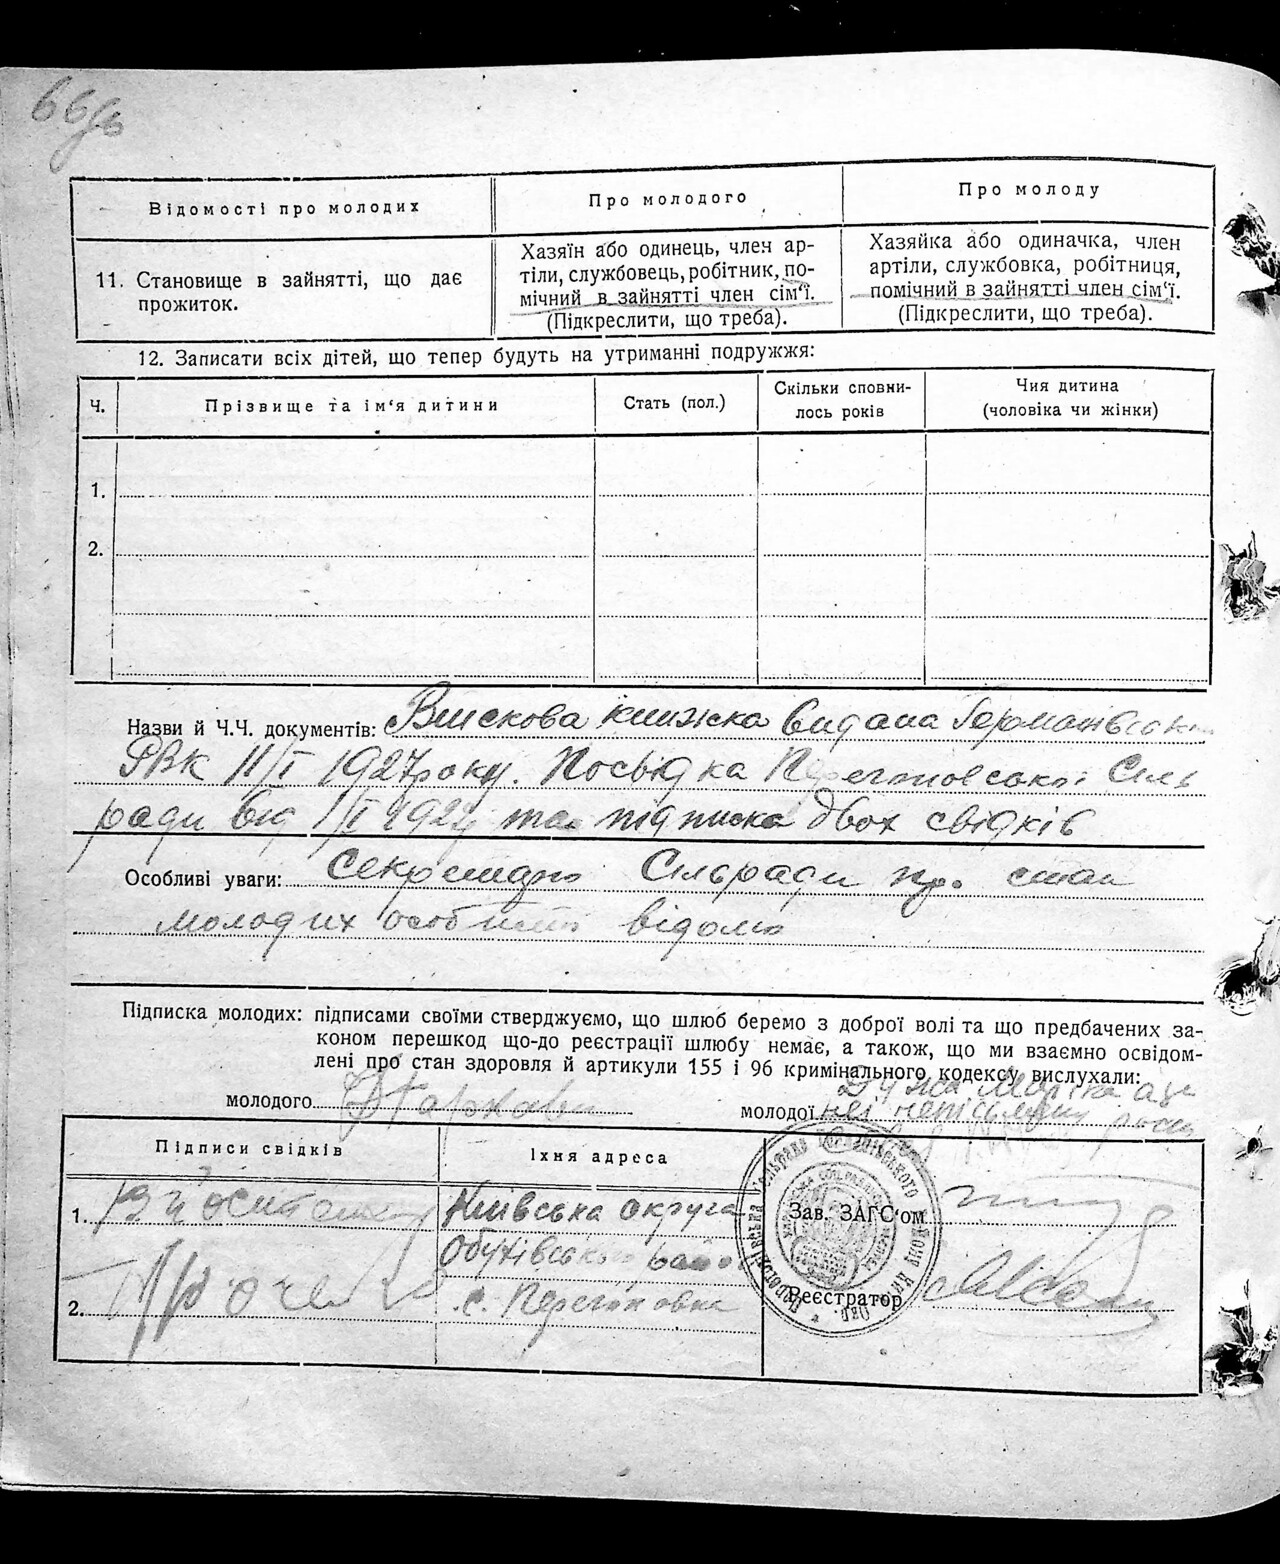 66
Відомості про молодих
Про молодого
Про молоду
11. Становище в зайнятті, що дає
прожиток.
Хазяїн або одинець, член ар-
тіли, службовець, робітник, по-
мічний в зайнятті член сім‘ї.
(Підкреслити, що треба).
Хазяйка або одиначка, член
артіли, службовка, робітниця,
помічний в зайнятті член сім‘ї.
(Підкреслити, що треба).
12. Записати всіх дітей, що тепер будуть на утриманні подружжя:
Ч.
Прізвище та ім‘я дитини
Стать (пол.)
Скільки сповни-
лось років
Чия дитина
(чоловіка чи жінки)
1.
2.
Назви й Ч.Ч. документів: книжка видана
РВК 11/I 1927 року. Посвідка Перегонівської Сіль
ради від та підписка двох свідків
Особливі уваги: Секретарю Сільради про стан
молодих особисто відомо
Підписка молодих: підписами своїми стверджуємо, що шлюб беремо з доброї волі та що предбачених за-
коном перешкод що-до реєстрації шлюбу немає, а також, що ми взаємно освідом-
лені про стан здоровля й артикули 155 і 96 кримінального кодексу вислухали:
молодого
молодої
Підписи свідків
Їхня адреса
1.
Київська округа
Зав. ЗАГС‘ом
Обухівський район
2.
с. Перегонівка
Реєстратор